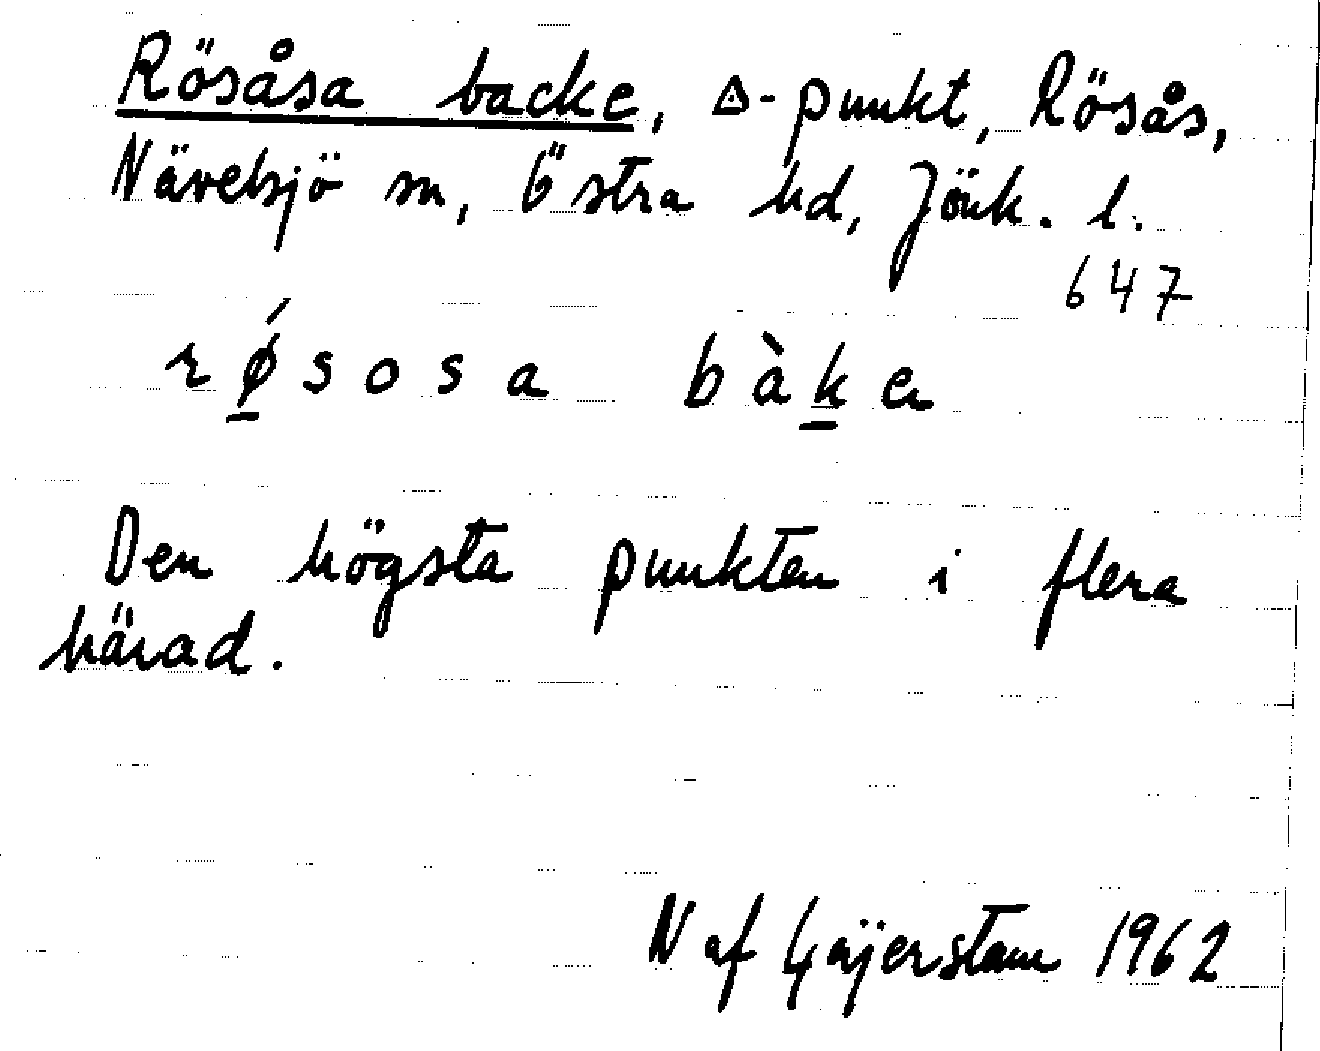 Rösåsa backe, △-punkt, Rösås,
Nävelsjö sn, Östra hd, Jönk. l.
647
rǿsosa bàka
Den högsta punkten i flera
härad.
N af Geijerstam 1962